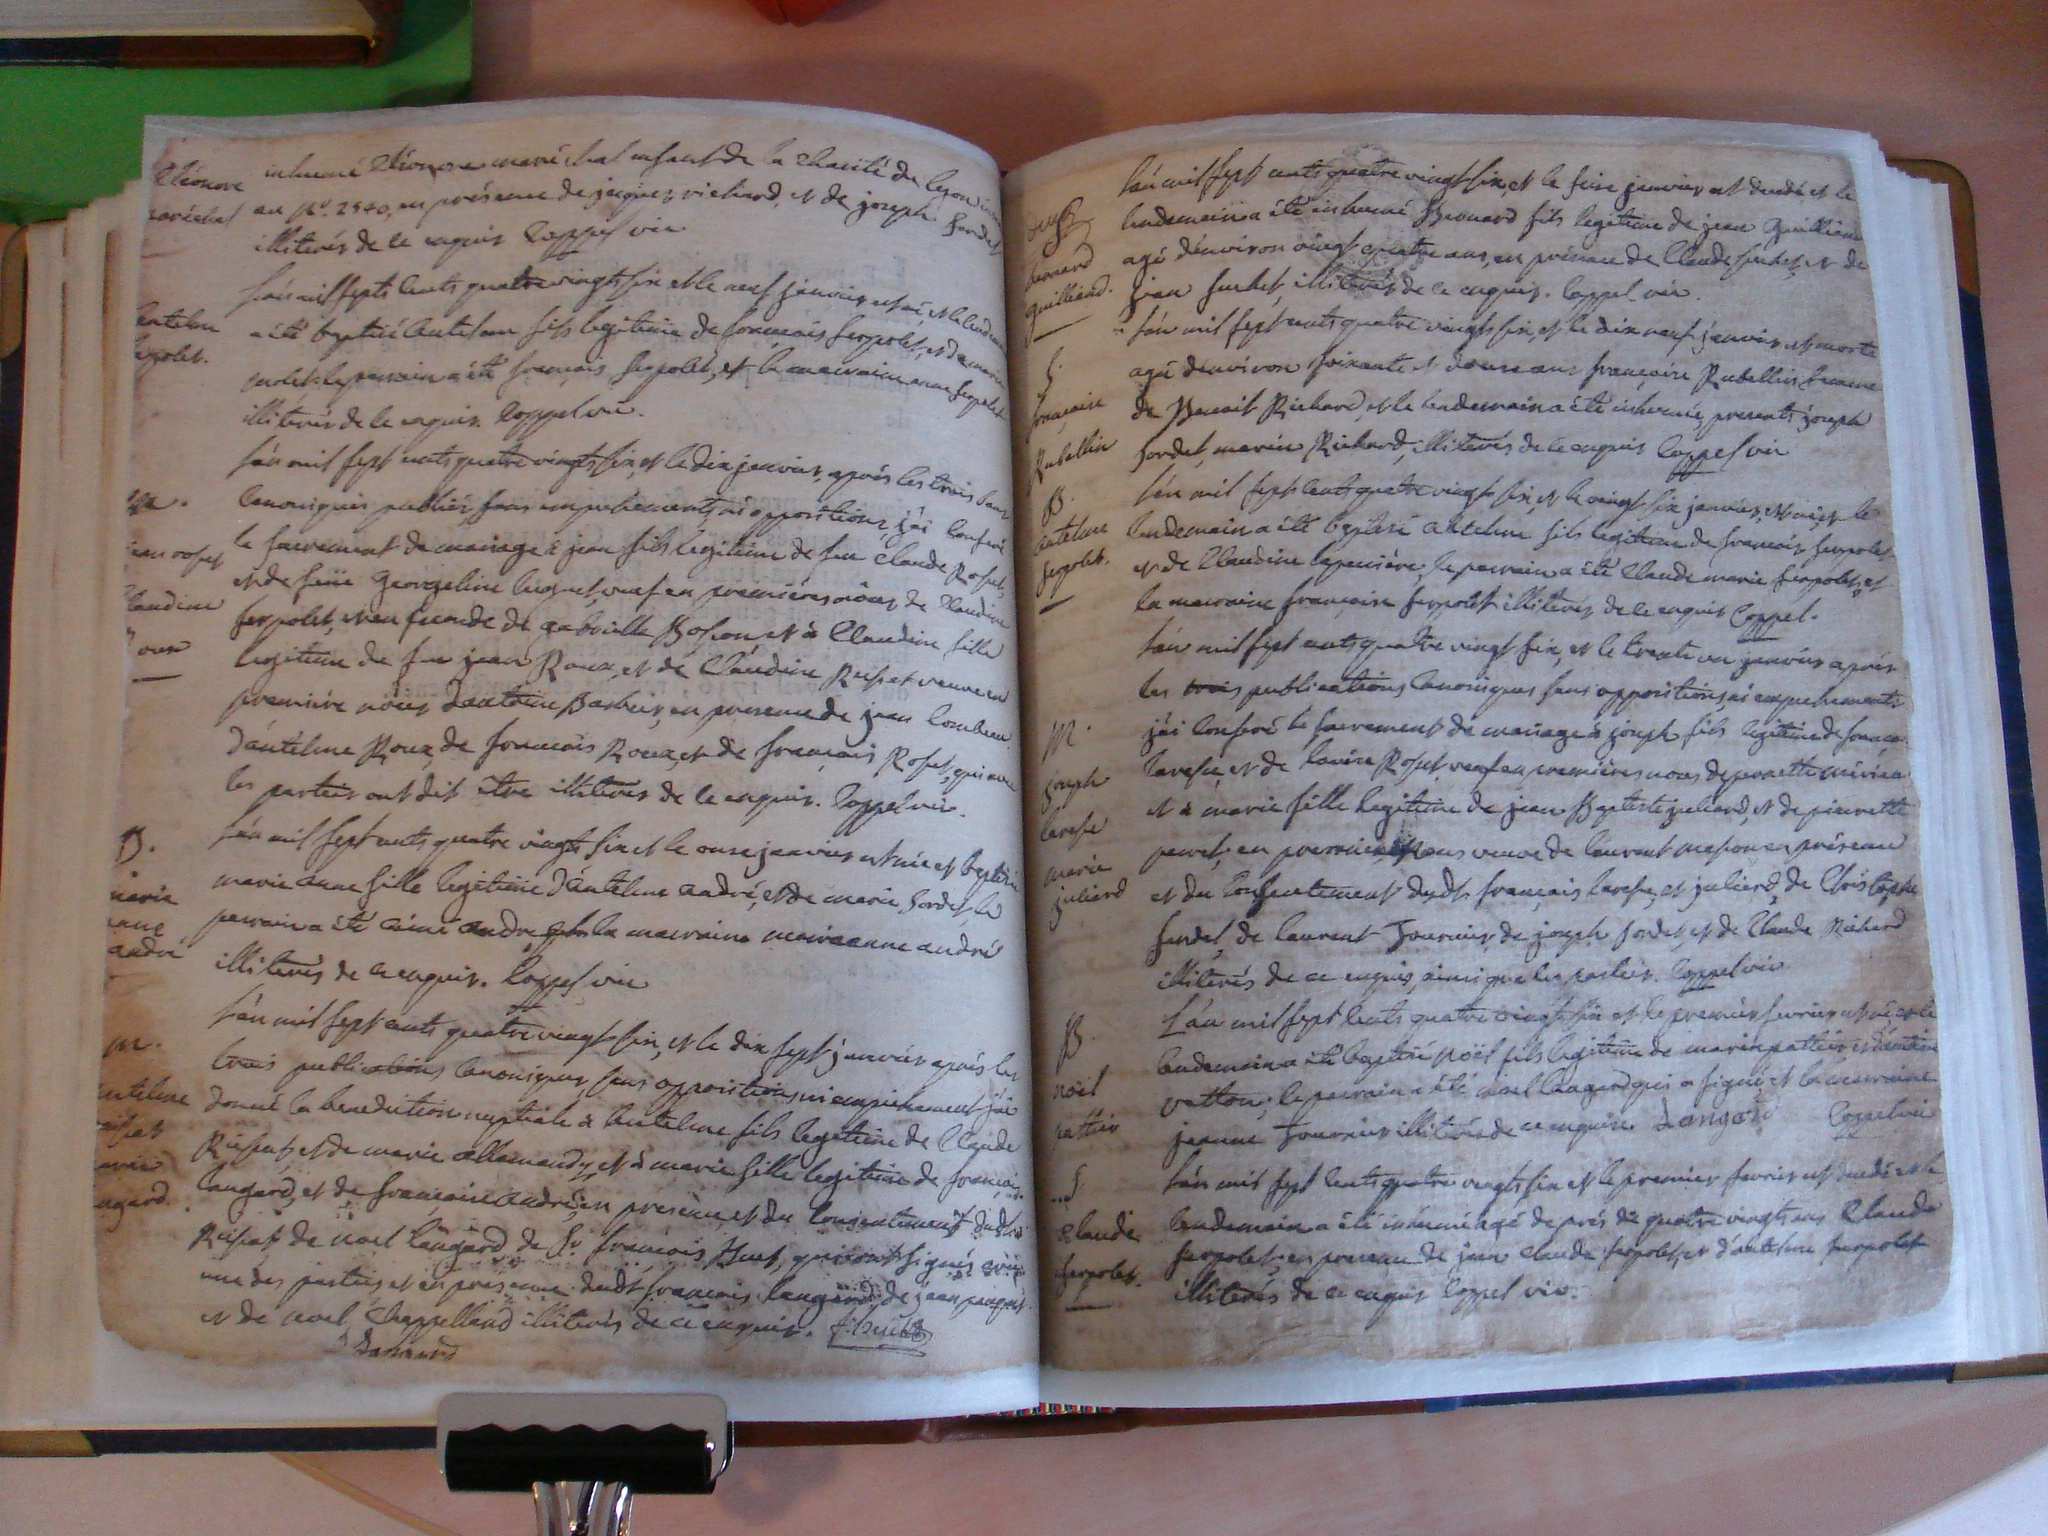 Eléonore
maréchal
inhumé Eléonore maréchal enfant de la charité de Lyon
au N°. 2540, en présence de jacques richard, et de joseph Sordet
illiterés de ce enquis Coppel vic
L'an mil septs cents quatre vingts six et le neuf janvier est né et le lendemain
antelme
serpolet.
a été baptisé antelme fils legitime de françois serpolet, et de marie
le parrain a été françois serpolet, et la marraine anne serpolet
illiterés de ce enquis. Coppel vic.
L'an mil sept cents quatre vingts six, et le dix janvier, après les trois bans
canoniques publiés, sans empechements, ni oppositions, j'ai conferé
M.
jean roset
claudine
roux
le sacrement de mariage à jean fils legitime de feu claude Roset,
et de feüe Georgeline huguet, veuf en premières nôces de Claudine
serpolet, et en seconde de gabrielle Bosson, et à Claudine fille
legitime de feu jean Roux, et de Claudine Ruset veuve en
première nôces d'antoine Barbier, en presence de jean
d'antelme Roux, de françois Roux, et de françois Roset, qui avec
les parties ont dit être illiterés de ce enquis. Coppel vic.
B.
marie
anne
andré
L'an mil sept cents quatre vingts six et le onze janvier est née et baptisée
marie anne fille legitime d'antelme andré, et de marie Sordet, le
parrain a été aimé andre, et la marraine marie anne andré
illiterés de ce enquis. Coppel vic
L'an mil sept cents quatre vingts six, et le dix sept janvier après les
M.
antelme
marie
langard.
trois publications canoniques, sans opposition, ni empechement j'ai
donné la benediction nuptiale à antelme fils legitime de Claude
et de marie allemand, et à marie fille legitime de françois
Langard, et de françoise andré, en presence, et du consentement dudt
de noel langard, de Sr. françois huet, qui ont signés avec
une des parties, et en presence dudt françois langard, de jean
et de noel Chappelland illiterés de ce enquis. f. huët
L'an mil sept cents quatre vingt six, et le seize janvier est decedé et le
bernard
guilliand.
lendemain a été inhumé Bernard fils legitime de jean Guilliand
agé d'environ vingt quatre ans, en présence de Claude surbet, et de
jean surbet, illiterés de ce enquis. Coppel vic.
L'an mil sept cents quatre vingts six, et le dix neuf janvier est morte
S.
françoise
Rubellin
agé d'environ soixante et douze ans françoise Rubellin femme
de Benoit Richard, et le lendemain a été inhumée, presents joseph
Sordet, marin Richard, illiterés de ce enquis Coppel vic
B.
antelme
serpolet.
L'an mil sept cents quatre vingt six, et le vingt six janvier, est né, et le
lendemain a été baptisé antelme fils legitime de françois serpolet
et de Claudine lapeniére, le parrain a été Claude marie serpolet, et
la marraine françoise serpolet illiterés de ce enquis Coppel.
L'an mil sept cents quatre vingt six, et le trente un janvier après
les trois publications canoniques sans oppositions, ni empechements
M.
joseph
marie
juliard
j'ai conferé le sacrement de mariage à joseph fils legitime de
et de Roset, veuf en premières noces de pernette
et à marie fille legitime de jean Baptiste juliard, et de pierrette
en premieres nous veuve de laurent en présence
et du consentement dudt. françois et juliard, de Christophe
Surdel, de laurent Tournier, de joseph Sordet, et de Claude Richard
illiterés de ce enquis, ainsi que les parties. Coppel vic
B.
noël
pattier
L'an mil sept cents quatre vingts six et le premier fevrier est né, et le
lendemain a été baptisé noël fils legitime de marin pattier et
vatton; le parrain a été noel langard qui a signé, et la marraine
jeanne Tournier illiterée de ce enquise. Langard Coppel vic
S.
Claude
serpolet.
L'an mil sept cents quatre vingts six et le premier fevrier est decedé et le
lendemain a été inhumé agé de près de quatre vingts ans Claude
serpolet, en presence de jean claude serpolet, et d'antelme serpolet
illiterés de ce enquis Coppel vic.